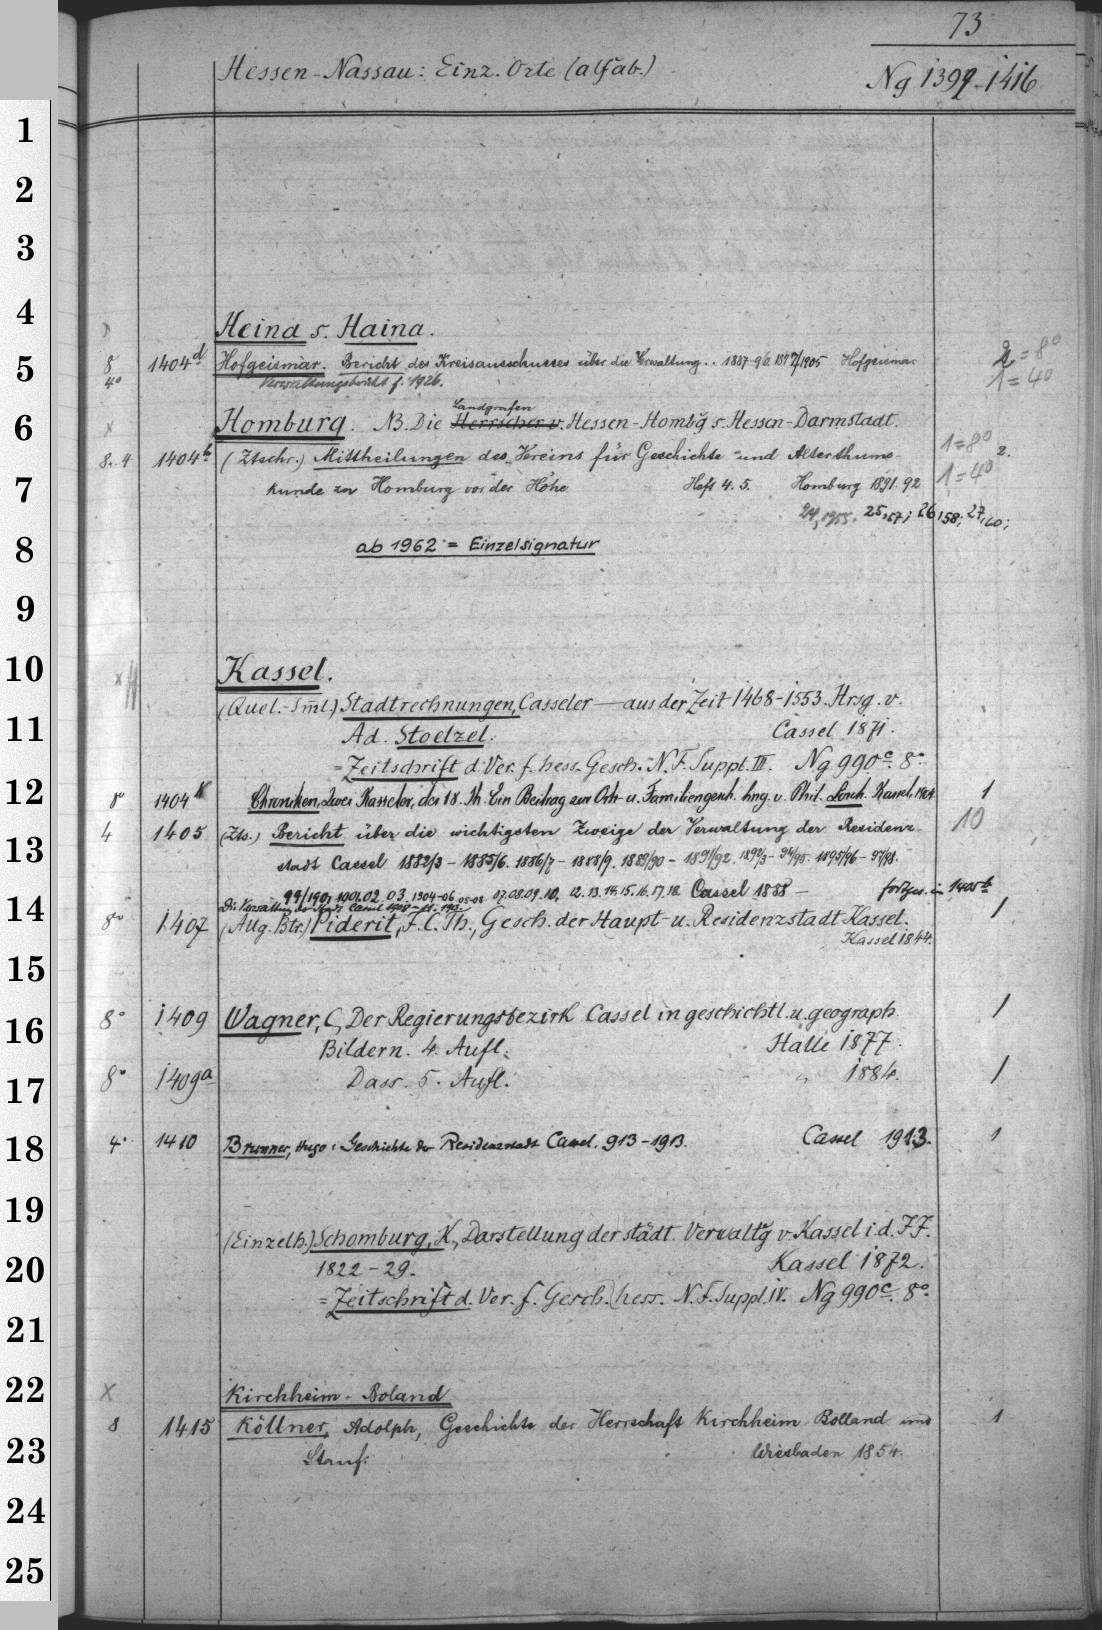 73
Hessen-Nassau: Einz. Orte (alfab.)
Ng 1399-1416
1
2
3
4
Heina s. Haina.
5
8 1404d Hofgeismar. Bericht des Kreisausschusses über die Verwaltung.. 1887-91. 1897/1905 Hofgeismar 2=8°
4° Verwaltungsbericht f. 1926. 1=4°
Landgrafen
6
x Homburg. NB. Die Herrscher v. Hessen-Hombg s. Hessen-Darmstadt.
8. 4 1404h (Ztschr.) Mittheilungen des Vereins für Geschichte und Alterthums- 1=8° 2.
7
kunde zu Homburg vor der Höhe Heft 4. 5. Homburg 1891. 92 1=4°
24,1955. 25,57; 26,58; 27,60;
8
ab 1962 = Einzelsignatur
9
10
Kassel.
(Quel.-Sml.) Stadtrechnungen, Casseler — aus der Zeit 1468-1553. Hrsg. v.
11
Ad. Stoelzel. Cassel 1871.
= Zeitschrift d. Ver. f. hess. Gesch. N.F. Suppl. III. Ng 990c. 8°
12
8° 1404k Chroniken, Zwei Kasseler, des 18. Jh. Ein Beitrag zur Orts- u. Familiengesch. hrsg. v. Phil. Losch. Kassel 1904 1
4 1405 (Zts.) Bericht über die wichtigsten Zweige der Verwaltung der Residenz- 10
13
stadt Cassel 1882/3 - 1885/6. 1886/7 - 1888/9. 1889/90 - 1891/92. 1892/3 - 94/95. 1895/96 - 97/98.
99/1900, 1901.02. 03. 1904-06. 05-08 07.08.09.10, 12.13.14.15.16.17.18. Cassel 1888 - fortges. in 1405b
14
Die Verwaltung der Stadt Cassel
8° 1407 (Aug. Btr.) Piderit, F.C.Th., Gesch. der Haupt- u. Residenzstadt Kassel. 1
Kassel 1844.
15
16
8° 1409 Wagner, C, Der Regierungsbezirk Cassel in geschichtl. u. geograph. 1
Bildern. 4. Aufl. Halle 1877.
17
8° 1409a Dass. 5. Aufl. " 1884. 1
18
4° 1410 Brunner, Hugo: Geschichte der Residenzstadt Cassel. 913-1913. Cassel 1913. 1
19
(Einzelh.) Schomburg, K., Darstellung der städt. Verwaltg v. Kassel i.d. J.J.
20
1822-29. Kassel 1872.
= Zeitschrift d. Ver. f. Gesch. hess. N.F. Suppl. IV. Ng 990c. 8°
21
22
x Kirchheim-Boland
8 1415 Köllner, Adolph, Geschichte der Herrschaft Kirchheim Bolland und 1
23
Stauf. Wiesbaden 1854.
24
25